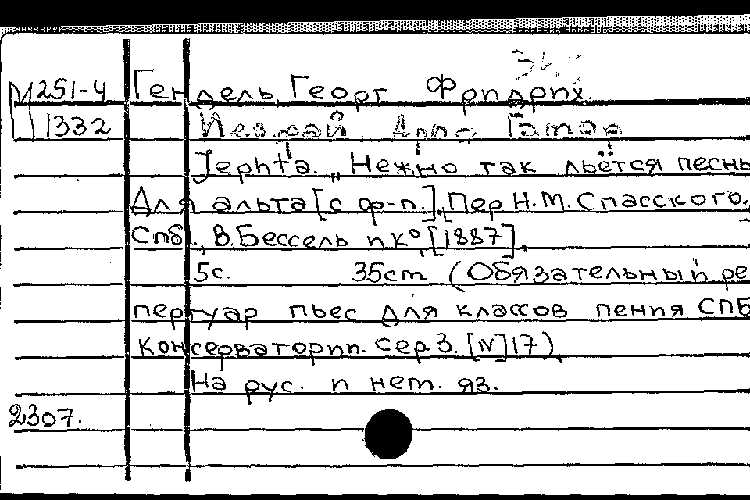 М 251-4 Гендель, Георг Фридрих
1332
Jephta. „Нежно так льётся песнь
Для альта [с ф-п.]. Пер. Н.М. Спасского.
Спб., В. Бессель и К°, [1887].
5с. 35см (Обязательный ре
пертуар пьес для классов пения СПБ
консерватории. Сер. 3. [№] 17).
На рус. и нем. яз.
2307.